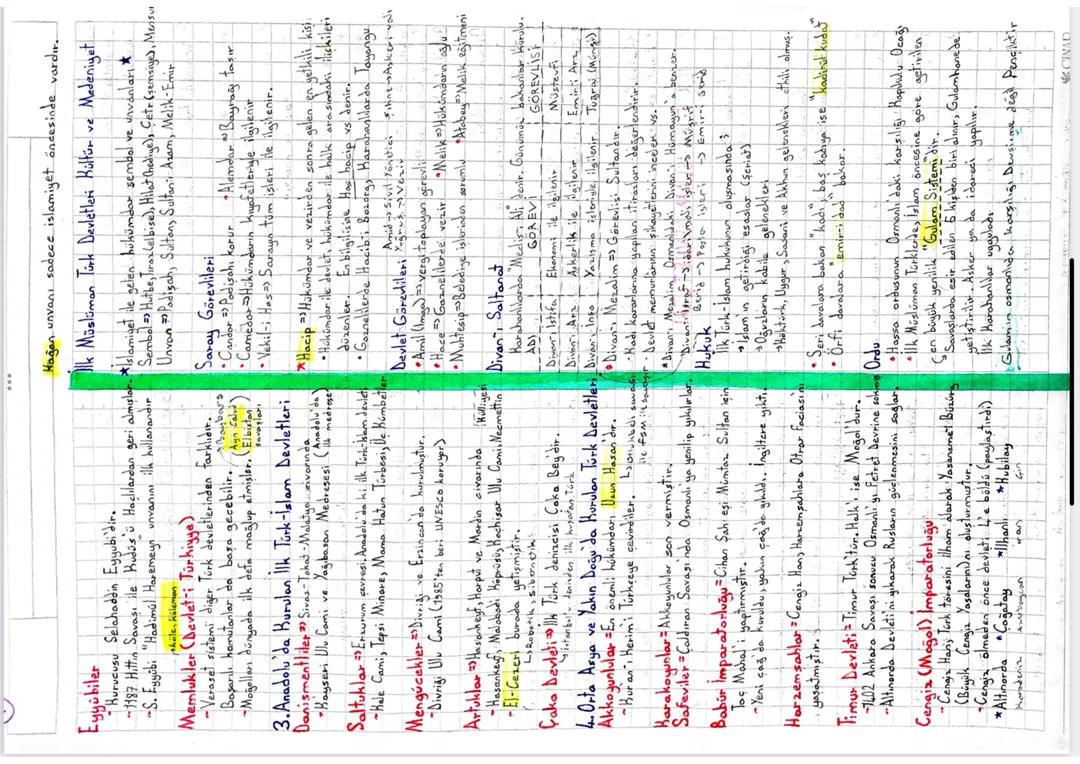 Eyyûbiler
- Kurucusu Selahaddin Eyyubi'dir.
- 1187 Hıttin Savası ile Kudüs'ü Haçlılardan geri almışlar.
- S. Eyyûbi "Hadimül Harameyn" unvanını ilk kullanandır
köle, kölemen
Memlukler (Devlet-i Türkiyye)
- Veraset sistemi diğer Türk devletlerinden farklıdır.
Başarılı komutanlar da başa geçebilir.
→ Baybars
- Moğolları dünyada ilk defa mağlup etmişler. (Ayn Calud
Elbistan
savaşları)
3. Anadolu'da Kurulan İlk Türk-İslam Devletleri
Danişmentliler => Sivas-Tokat-Malatya civarında
- Kayseri Ulu Cami ve Yağıbasan Medresesi (Anadolu'da
ilk medrese)
Saltuklar => Erzurum çevresi, Anadolu'daki ilk Türk İslam devleti
- Kale Cami, Tepsi Minare, Mama Hatun Türbesi, Üç Kümbetler
Mengücekler => Divriği ve Erzincan'da kurulmuştur.
- Divriği Ulu Cami (1985'ten beri UNESCO koruyor)
(Külliyesi
Artuklar => Hasankeyf, Harput ve Mardin civarında
- Hasankeyf, Malabadi Köprüsü, Koçhisar Ulu Cami, Necmettin
- El-Cezeri burada yetişmiştir.
↳ Robotik, sibernetik
Çaka Devleti => İlk Türk denizcisi Çaka Bey'dir.
↳ İstanbul'u denizden ilk kuşatan Türk
4. Orta Asya ve Yakın Doğu'da Kurulan Türk Devletleri
Akkoyunlular = En önemli hükümdarı Uzun Hasan'dır.
- Kuran'ı Kerim'i Türkçeye çevirdiler.
↳ Otlukbeli savaşı
ile FSM ile savaşır
Karakoyunlar = Akkoyunlular son vermiştir.
Safeviler = Çaldıran Savası'nda Osmanlı'ya yenilip yıkılırlar.
Babür İmparatorluğu = Cihan Şah eşi Mümtaz Sultan için
Taç Mahal'i yapıtmıştır.
- Yeni çağ'da kuruldu, yakın çağ'da yıkıldı. İngiltere yıktı.
Harzemşahlar = Cengiz Han, Harzemşahlara Otrar Faciasını
yaşatmıştır.
Timur Devleti = Timur Türk'tür. Halk'ı ise Moğol'dur.
- 1402 Ankara Savaşı sonucu Osmanlı'yı Fetret Devrine sokmuş
- Altınorda Devleti'ni yıkarak Rusların güçlenmesini sağlar.
Cengiz (Moğol) İmparatorluğu
- Cengiz Han, Türk töresini ilham alarak Yasaname-i Büzürg
(Büyük Cengiz Yasalarını) oluşturmuştur.
- Cengiz ölmeden önce devleti 4'e böldü (paylaştırdı)
*Altınorda *Çağatay *İlhanlı *Kubilay
Karadeniz Azerbaycan İran Çin
Kağan unvanı sadece islamiyet öncesinde vardır.
İlk Müslüman Türk Devletleri Kültür ve Medeniyet
*İslamiyet ile gelen hükümdar sembol ve unvanları *
Sembol => Hutbe, Tıraz(elbise), Hilat(hediye), Çetr (şemsiye), Mensur
Unvan => Padişah, Sultan, Sultan-ı Azam, Melik-Emir
Saray Görevlileri
• Candar => Padişahı korur • Alemdar => Bayrağı taşır
• Camedar => Hükümdarın kıyafetleriyle ilgilenir
• Vekil-i Has => Sarayın tüm işleri ile ilgilenir.
*Hacip => Hükümdar ve vezirden sonra gelen en yetkili kişi.
• Hükümdar ile devlet, hükümdar ile halk arasındaki ilişkileri
düzenler. En bilgilisine Has hacip vs denir.
• Gaznelilerde Hacib-i Bozorg, Karahanlılarda Tayangu
Devlet Görevlileri
Amid → Sivil Yönetici Şahne → Askeri vali
Yuğruş → Vezir
• Amil (İmga) => vergi toplayan görevli
• Hace => Gaznelilerde vezir • Melik => Hükümdarın oğlu
• Muhtesip => Belediye işlerinden sorumlu • Atabey => Melik eğitmeni
Divan-ı Saltanat
Karahanlılarda "Meclis-i Ali" denir. Günümüz bakanlar kurulu.
ADI GÖREVİ GÖREVLİSİ
Divan-ı İstifa Ekonomi ile ilgilenir Müstevfi
Divan-ı Arz Askerlik ile ilgilenir Emir-i Arz
Divan-ı İnşa Yazışma işleriyle ilgilenir Tuğrai (Münşi)
• Divan-ı Mezalim => Görevlisi Sultandır.
- Kadı kararlarına yapılan itirazları değerlendirir.
Devlet memurlarının şikayetlerini inceler vs.
*Divan-ı Mezalim, Osmanlıdaki Divan-ı Hümayun'a benzer.
Divan-ı İşraf → idari/mali işler → Müşrif
Berid → Posta işleri → Emir-i Berid
Hukuk
İlk Türk-İslam hukukunun oluşmasında;
→ İslam'ın getirdiği esaslar (Şeriat)
→ Oğuzların kabile gelenekleri
→ Köktürk, Uygur, Sasani ve Akhun gelenekleri etkili olmuş.
• Şeri davalara bakan "kadı", baş kadıya ise "kadıul kudat"
• Örfi davalara "emir-i dad" bakar.
Ordu
• Hassa ordusunun Osmanlı'daki karşılığı Kapıkulu Ocağı
• İlk Müslüman Türklerde, İslam öncesine göre getirilen
en büyük yenilik "Gulam Sistemi"dir.
Savaşlarda esir edilen 5 kişiden biri alınır, Gulamhanede
yetiştirilir. Asker ya da idareci yapılır.
İlk Karahanlılar uyguladı.
*Gulamın osmanlıda karşılığı Devşirme değil Pençiktir